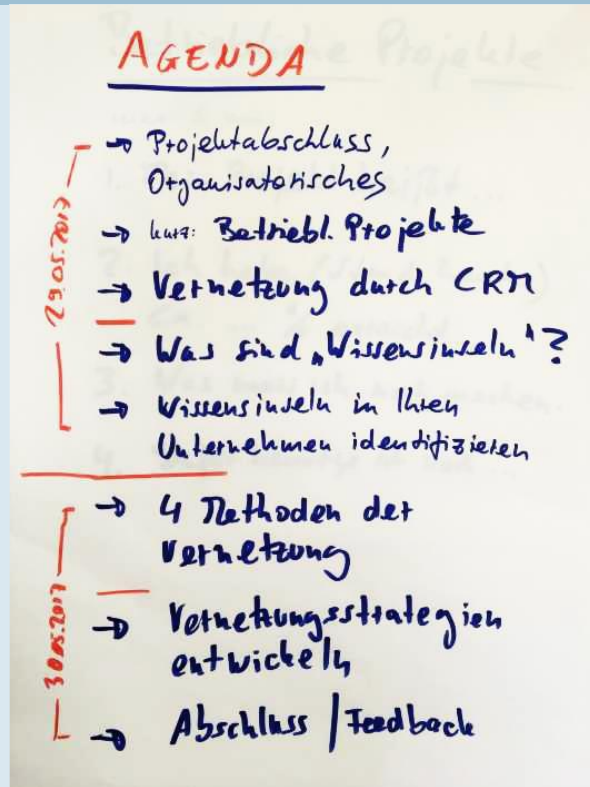 AGENDA
→ Projektabschluss,
Organisatorisches
→ kurz: Betriebl. Projekte
→ Vernetzung durch CRM
→ Was sind „Wissensinseln“?
→ Wissensinseln in Ihren
Unternehmen identifizieren
29.05.2017
→ 4 Methoden der
Vernetzung
→ Vernetzungsstrategien
entwickeln
→ Abschluss / Feedback
30.05.2017